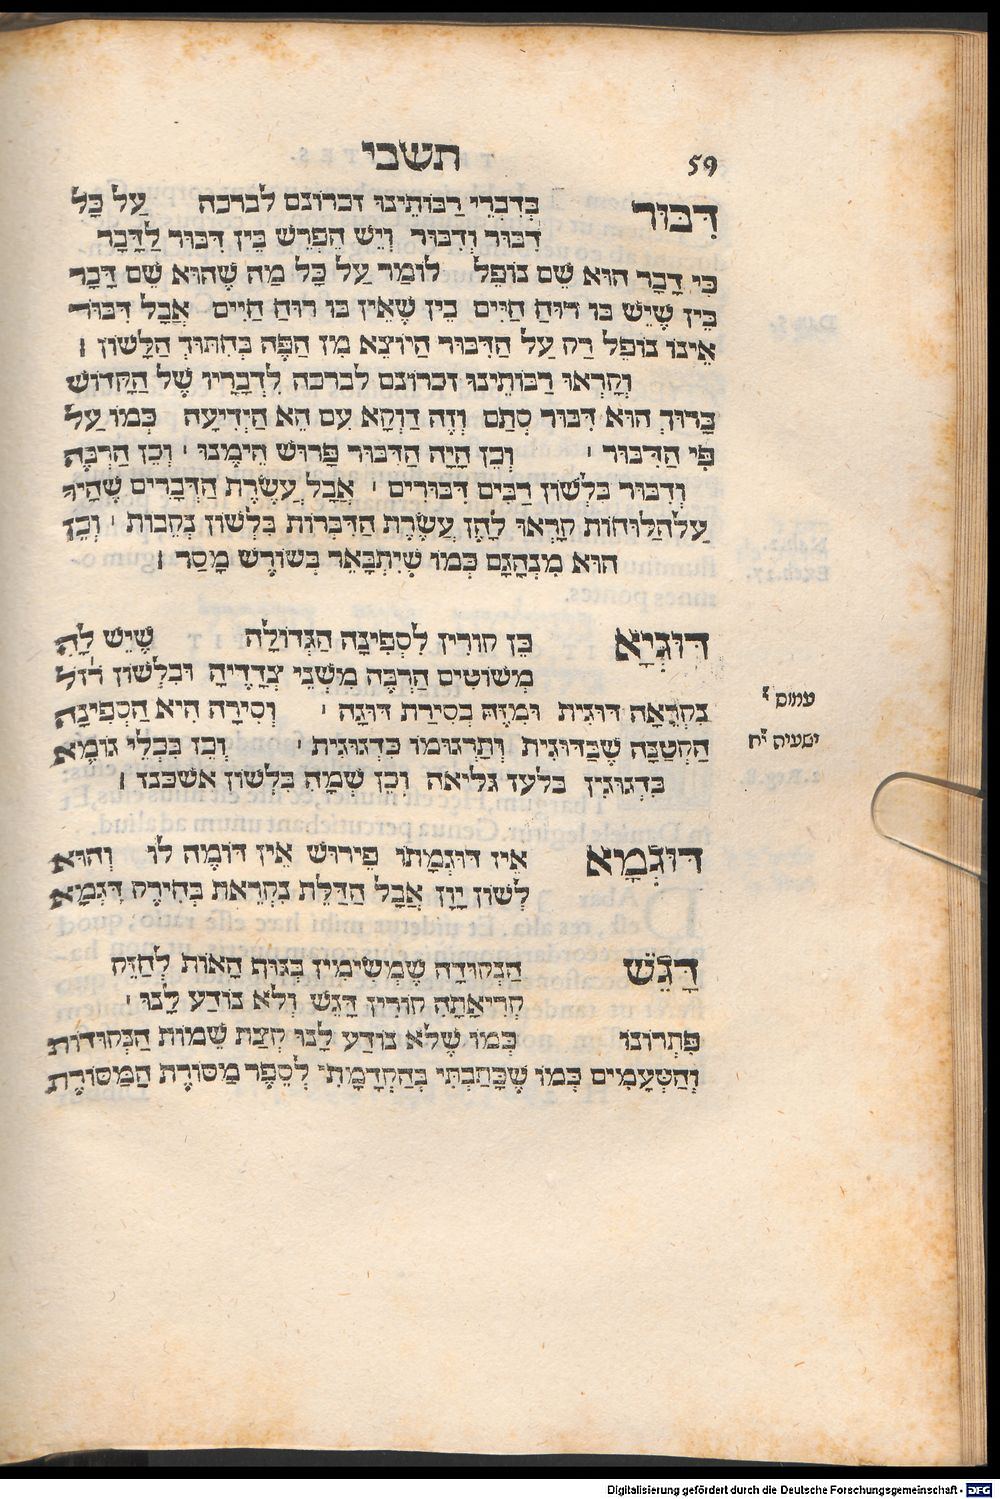 תשבי
59
דִּבּוּר בְּדִבְרֵי רַבּוֹתֵינוּ זכרונם לברכה עַל כָּל
דִּבּוּר וְדִבּוּר וְיֵשׁ הֶפְרֵשׁ בֵּין דִּבּוּר לַדָּבָר
כִּי דָבָר הוּא שֵׁם נוֹפֵל לוֹמַר עַל כָּל מַה שֶׁהוּא שֵׁם דָּבָר
בֵּין שֶׁיֵּשׁ בּוֹ רוּחַ חַיִּים בֵּין שֶׁאֵין בּוֹ רוּחַ חַיִּים אֲבָל דִּבּוּר
אֵינוֹ נוֹפֵל רַק עַל הַדִּבּוּר הַיּוֹצֵא מִן הַפֶּה בְּחִתּוּךְ הַלָּשׁוֹן ׀
וְקָרְאוּ רַבּוֹתֵינוּ זכרונם לברכה לִדְבָרָיו שֶׁל הַקָּדוֹשׁ
בָּרוּךְ הוּא דִּבּוּר סְתָם וְזֶה דַוְקָא עִם הֵא הַיְדִיעָה כְּמוֹ עַל
פִּי הַדִּבּוּר ׳ וְכֵן הָיָה הַדִּבּוּר פָּרוּשׁ הֵימֶנּוּ ׳ וְכֵן הַרְבֵּה
וְדִבּוּר בִּלְשׁוֹן רַבִּים דִּבּוּרִים ׳ אֲבָל עֲשֶׂרֶת הַדְּבָרִים שֶׁהָיוּ
עַל הַלּוּחוֹת קָרְאוּ לָהֶן עֲשֶׂרֶת הַדִּבְּרוֹת בִּלְשׁוֹן נְקֵבוֹת ׳ וְכֵן
הוּא מִנְהָגָם כְּמוֹ שֶׁיִּתְבָּאֵר בְּשׁוֹרֶשׁ מָסַר ׀
דּוּגְיָא כֵּן קוֹרִין לִסְפִינָה הַגְּדוֹלָה שֶׁיֵּשׁ לָהּ
מְשׁוֹטִים הַרְבֵּה מִשְּׁנֵי צְדָדֶיהָ וּבִלְשׁוֹן רז״ל
נִקְרָאָה דּוּגִית וּמִזֶּה בְסִירַת דּוּגָה ׳ וְסִירָה הִיא הַסְּפִינָה
הַקְּטַנָּה שֶׁבַּדּוּגִית וְתַרְגּוּמוֹ בִּדְגוּגִית ׳ וְכֵן בִּכְלֵי גוֹמֶא
בִּדְגוּגִין בלעז גליאה וְכֵן שְׁמָהּ בִּלְשׁוֹן אשכנז ׀
עמוס ד׳
ישעיה י״ח
דּוּגְמָא אֵין דּוּגְמָתוֹ פֵּירוּשׁ אֵין דּוֹמֶה לוֹ וְהוּא
לְשׁוֹן יָוָן אֲבָל הַדַּלֶת נִקְרֵאת בְּחִירֶק דִּגְמָא
דָּגֵשׁ הַנְּקוּדָה שֶׁמְּשִׂימִין בְּגוּף הָאוֹת לְחַזֵּק
קְרִיאָתָהּ קוֹרִין דָּגֵשׁ וְלֹא נוֹדַע לָנוּ ׳
פִּתְרוֹנוֹ כְּמוֹ שֶׁלֹּא נוֹדַע לָנוּ קְצַת שֵׁמוֹת הַנְּקוּדוֹת
וְהַטְּעָמִים כְּמוֹ שֶׁכָּתַבְתִּי בְּהַקְדָּמָתִי לְסֵפֶר מַסּוֹרֶת הַמַּסּוֹרֶת
Digitalisierung gefördert durch die Deutsche Forschungsgemeinschaft - DFG